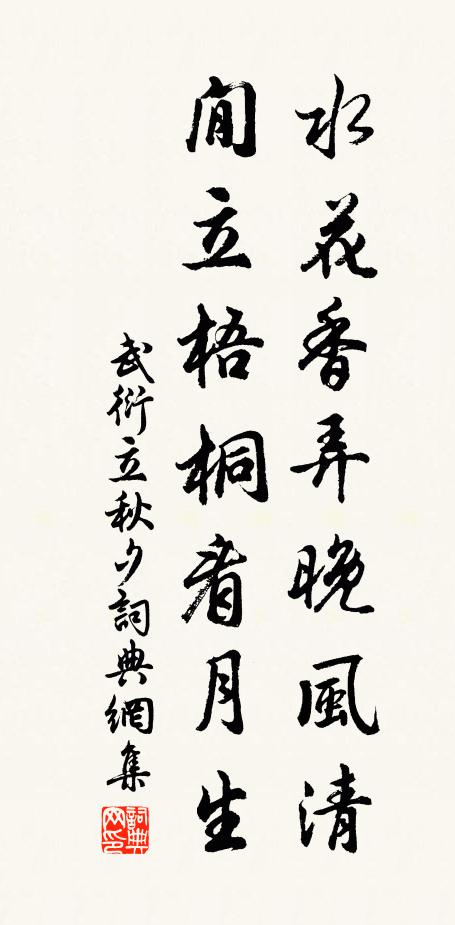 水花香弄晚風清
閒立梧桐看月生
武衍立秋夕詞典網集
詞典網印